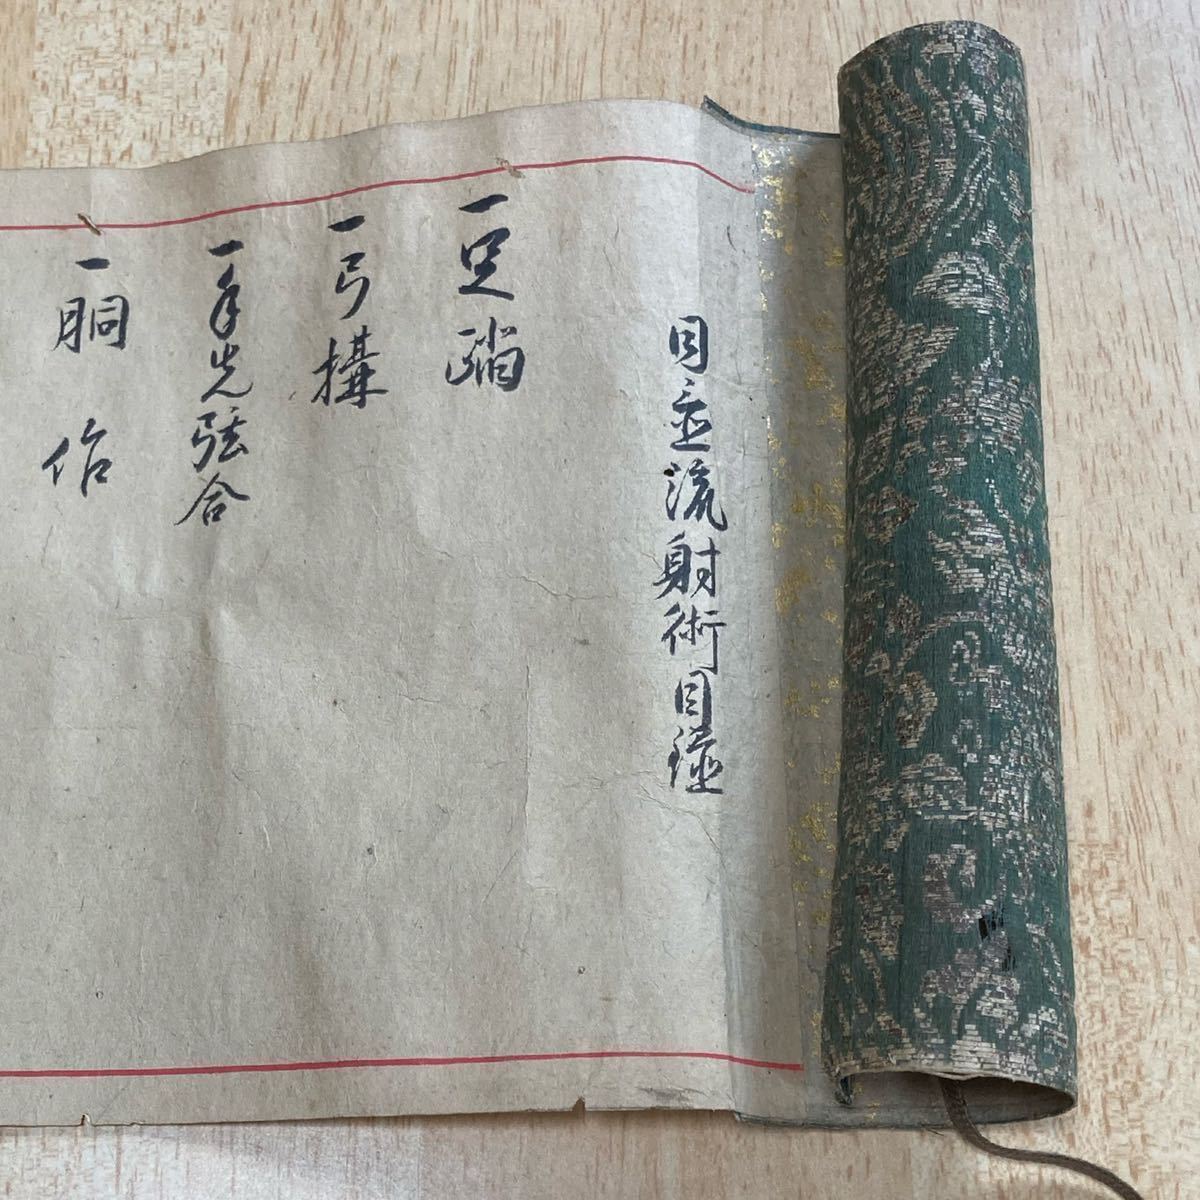 日置流射術目録
一足踏
一弓構
一手先弦合
一胴作